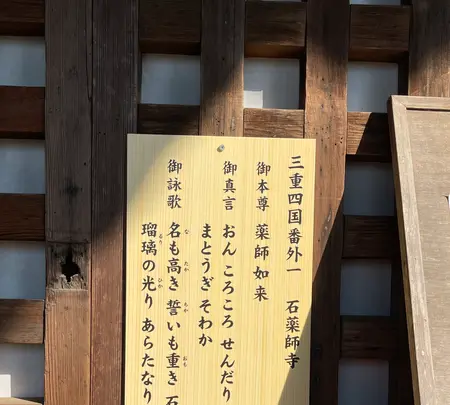 三重四国番外一 石薬師寺
御本尊 薬師如来
御真言 おん ころころ せんだり
まとうぎ そわか
御詠歌 名も高き 誓いも重き 石
瑠璃の光り あらたなり